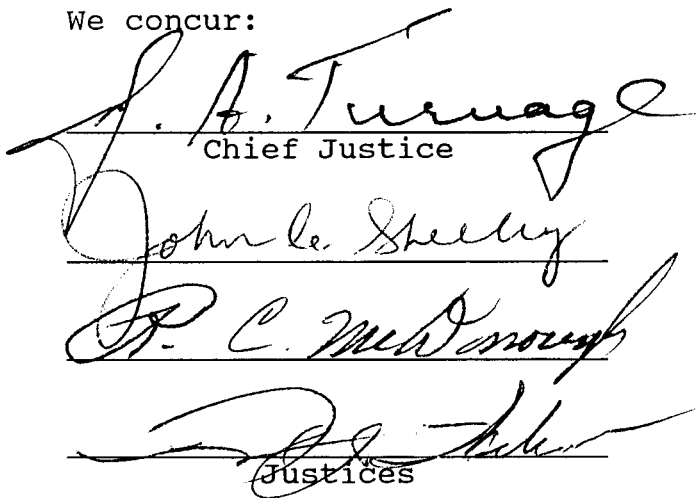 We concur:
J. A. Turnage
Chief Justice
John C. Sheehy
R. C. McDonough
Justices